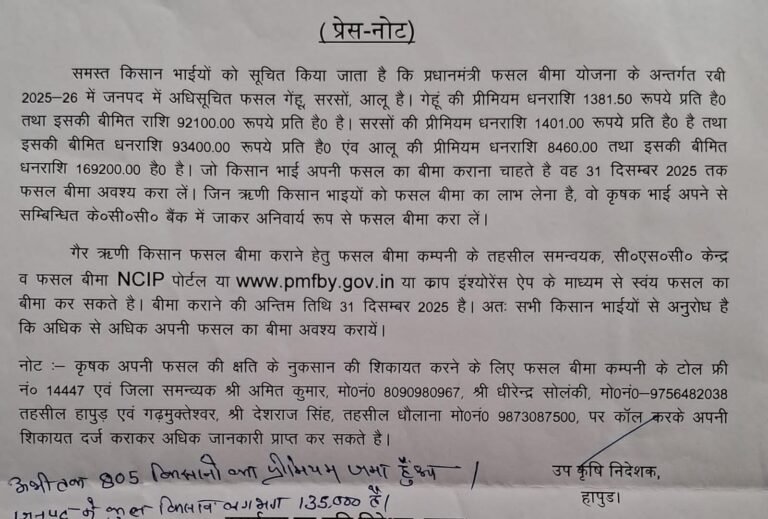 ( प्रेस-नोट)
समस्त किसान भाईयों को सूचित किया जाता है कि प्रधानमंत्री फसल बीमा योजना के अन्तर्गत रबी
2025–26 में जनपद में अधिसूचित फसल गेंहू, सरसों, आलू है। गेहूं की प्रीमियम धनराशि 1381.50 रूपये प्रति है0
तथा इसकी बीमित राशि 92100.00 रूपये प्रति है0 है। सरसों की प्रीमियम धनराशि 1401.00 रूपये प्रति है0 है तथा
इसकी बीमित धनराशि 93400.00 रूपये प्रति है0 एंव आलू की प्रीमियम धनराशि 8460.00 तथा इसकी बीमित
धनराशि 169200.00 है0 है। जो किसान भाई अपनी फसल का बीमा कराना चाहते है वह 31 दिसम्बर 2025 तक
फसल बीमा अवश्य करा लें। जिन ऋणी किसान भाइयों को फसल बीमा का लाभ लेना है, वो कृषक भाई अपने से
सम्बिन्धित के०सी०सी० बैंक में जाकर अनिवार्य रूप से फसल बीमा करा लें।
गैर ऋणी किसान फसल बीमा कराने हेतु फसल बीमा कम्पनी के तहसील समन्वयक, सी०एस०सी० केन्द्र
व फसल बीमा NCIP पोर्टल या www.pmfby.gov.in या काप इंश्योरेंस ऐप के माध्यम से स्वंय फसल का
बीमा कर सकते है। बीमा कराने की अन्तिम तिथि 31 दिसम्बर 2025 है। अतः सभी किसान भाईयों से अनुरोध है
कि अधिक से अधिक अपनी फसल का बीमा अवश्य करायें।
नोट :– कृषक अपनी फसल की क्षति के नुकसान की शिकायत करने के लिए फसल बीमा कम्पनी के टोल फ्री
नं० 14447 एवं जिला समन्व्यक श्री अमित कुमार, मो0नं0 8090980967, श्री धीरेन्द्र सोलंकी, मो0नं0–9756482038
तहसील हापुड़ एवं गढ़मुक्तेश्वर, श्री देशराज सिंह, तहसील धौलाना मो0नं0 9873087500, पर कॉल करके अपनी
शिकायत दर्ज कराकर अधिक जानकारी प्राप्त कर सकते है।
अभी तक 805 किसानों का प्रीमियम जमा हुआ
उप कृषि निदेशक,
जनपद में कुल किसान लगभग 135,000 हैं।
हापुड़।